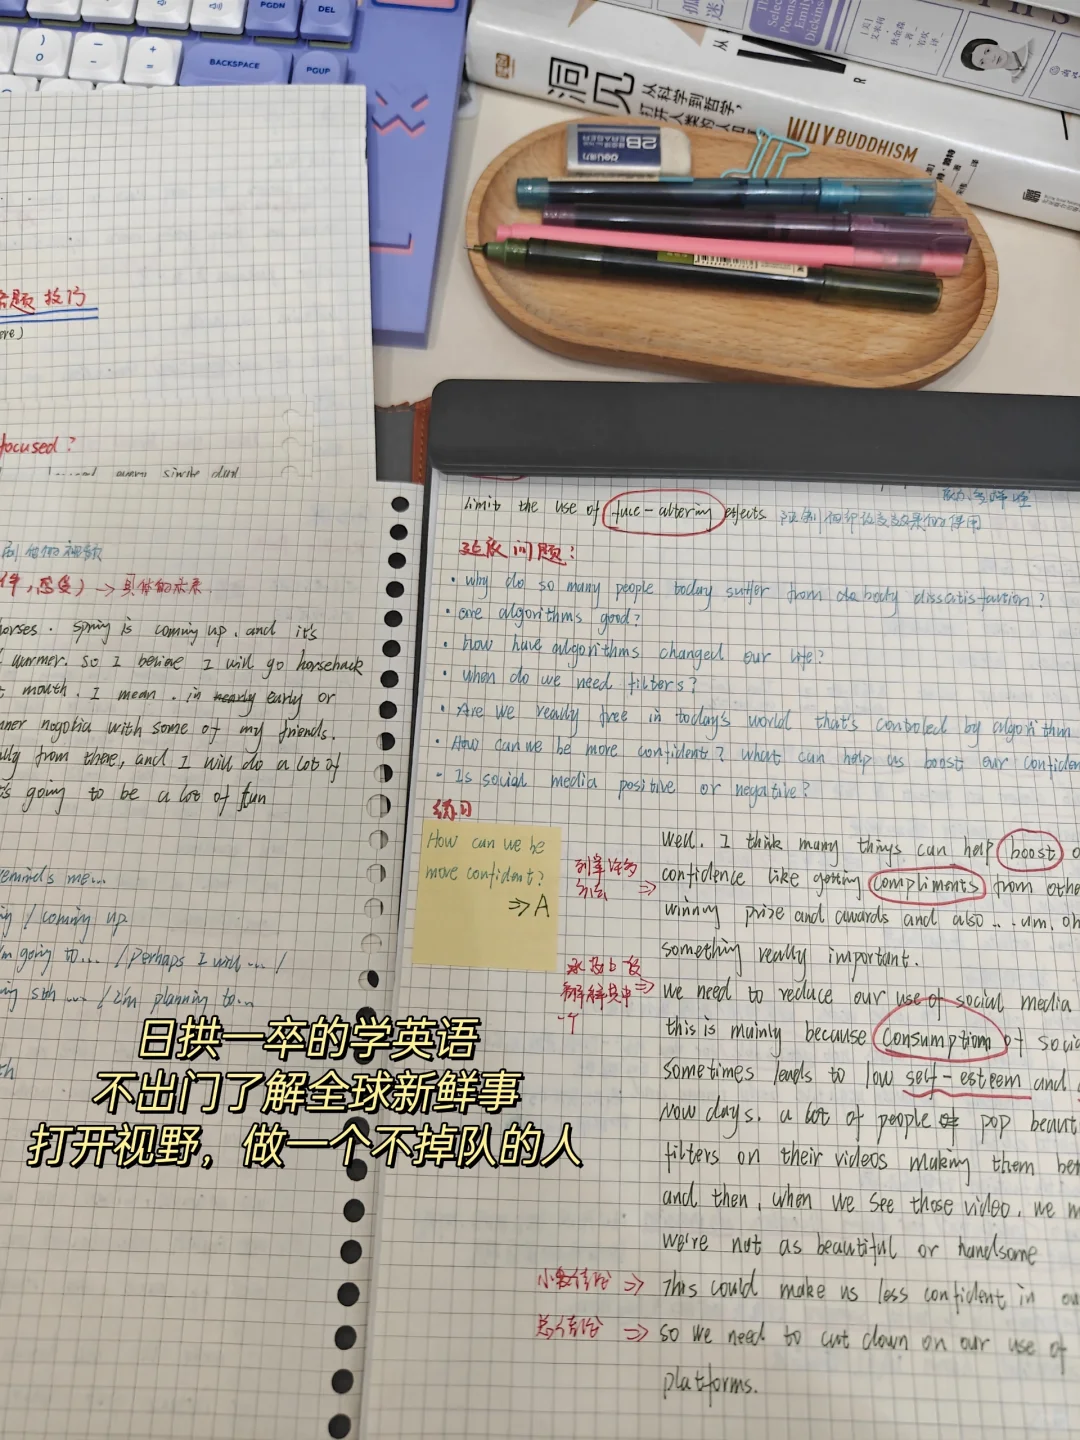 PGDN
DEL
BACKSPACE
PGUP
洞见
从科学到哲学,
打开人类的
WHY BUDDHISM
The Selected Poems of Emily Dickinson
2B
ERASER
deli
答题 技巧
focused?
limit the use of face-altering effects
延展问题:
· why do so many people today suffer from da body dissatisfaction?
· are algorithms good?
· How have algorithms changed our life?
· when do we need filters?
· Are we really free in today's world that's controled by algorithm
· How can we be more confident? what can help us boost our confiden
· Is social media positive or negative?
练习
How can we be
more confident?
⇒ A
well. I think many things can help boost
列举许多
confidence like getting compliments from othe
winny prize and awards and also... um. oh
something really important.
we need to reduce our use of social media
this is mainly because consumptiom of socia
sometimes leads to low self-esteem and
Now days. a lot of people pop beaut
filters on their videos making them bet
and then, when we see those video, we m
we're not as beautiful or handsome
小结论 ⇒ This could make us less confident in ou
总结论 ⇒ so we need to cut down on our use of
platforms.
→ 具体的未来
horses. spring is coming up. and it's
warmer. so I believe I will go horseback
mouth. I mean. in nearly early or
nner nogotia with some of my friends.
lly from there, and I will do a lot of
's going to be a lot of fun
reminds me...
ing / coming up
'm going to... / Perhaps I will... /
ing sth ... / I'm planning to...
日拱一卒的学英语
不出门了解全球新鲜事
打开视野，做一个不掉队的人